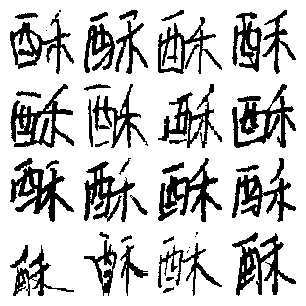 酥酥酥酥
酥酥酥酥
酥酥酥酥
酥酥酥酥